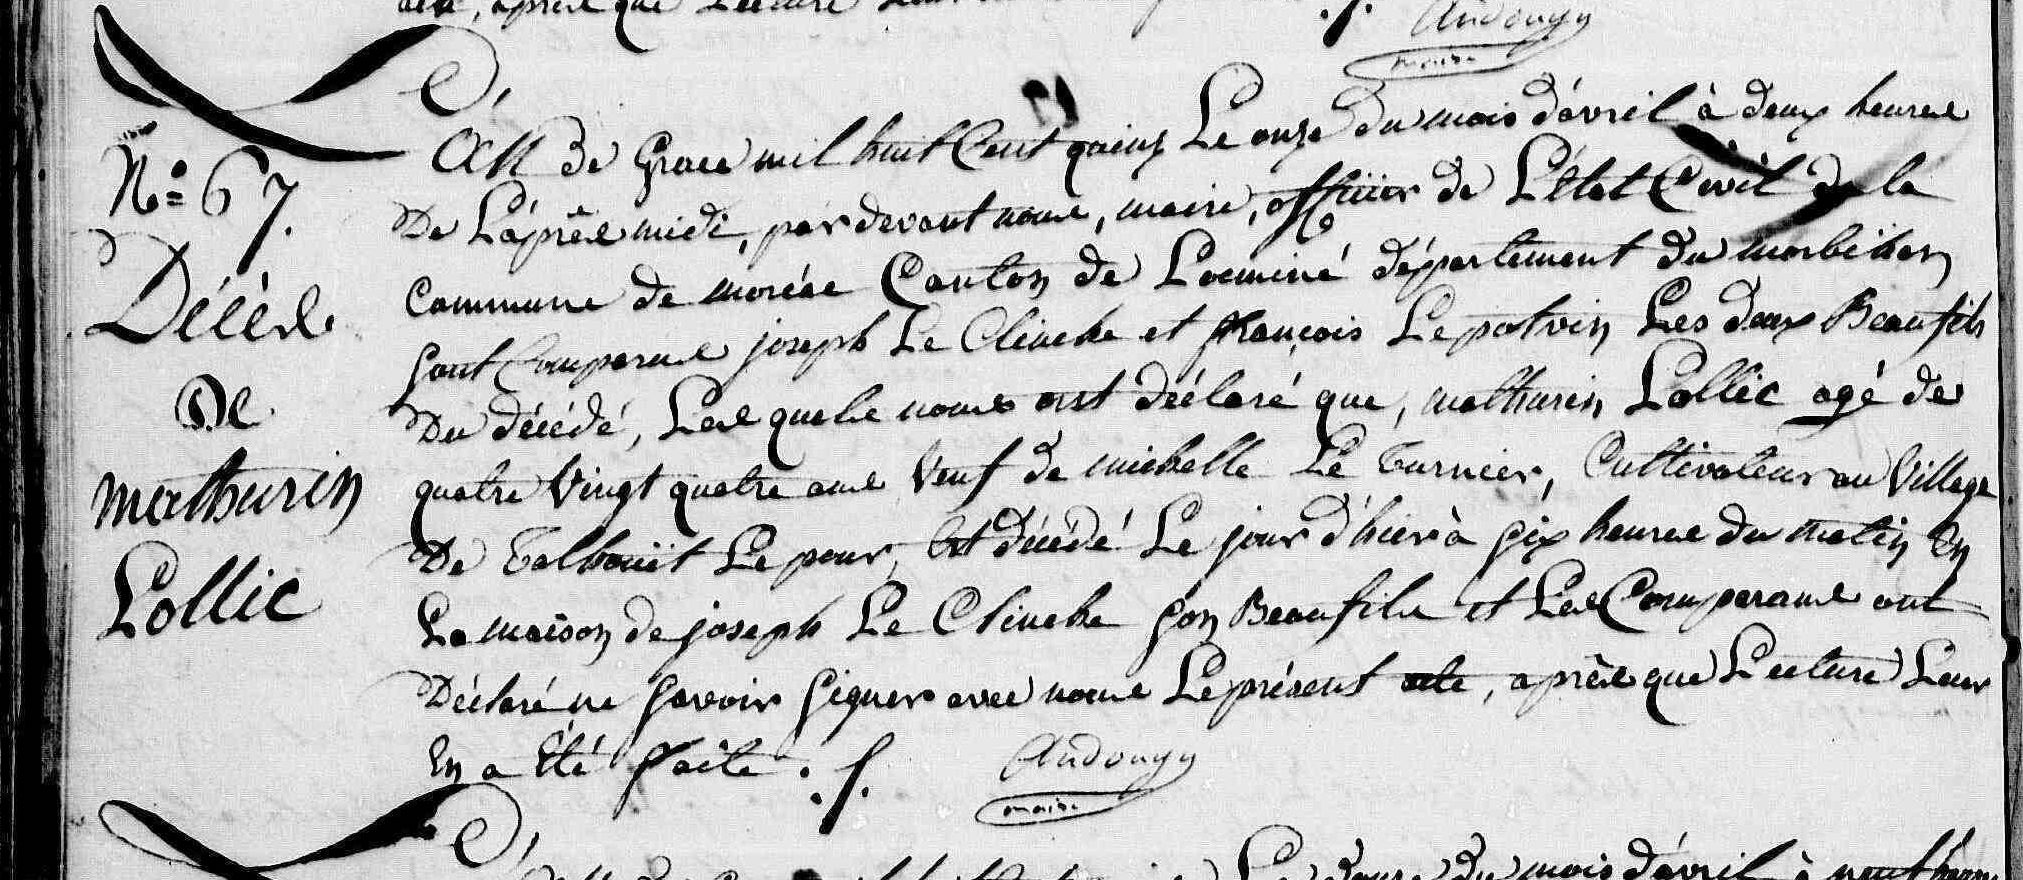 acte, après que Lecture
Audouyn
maire
N.° 67.
Décès
De
mathurin
Lollic
L'an De Grace mil huit Cent quinz Le onze Du mois d'avril à deux heures
De L'après midi, par devant nous, maire, officier de L'état Civil de la
Commune de moréac Canton de Locminé département du morbihan
Sont Comparus joseph Le Clinche et françois Le potvin Les deux Beaufils
Du décédé, Lesquels nous ont déclaré que, mathurin Lollic agé de
quatre Vingt quatre ans Veuf de michelle Le Turnier, Cultivateur au Village
De Talhouit Le pour, Est décédé Le jour d'hier à Six heures du matin En
La maison de joseph Le Clinche Son Beaufils et Les Comparans ont
Déclaré ne Savoir Signer avec nous Le présent acte, après que Lecture Leur
En a Été faite ./.
Audouyn
maire
Le douze Du mois d'avril à neuf heures